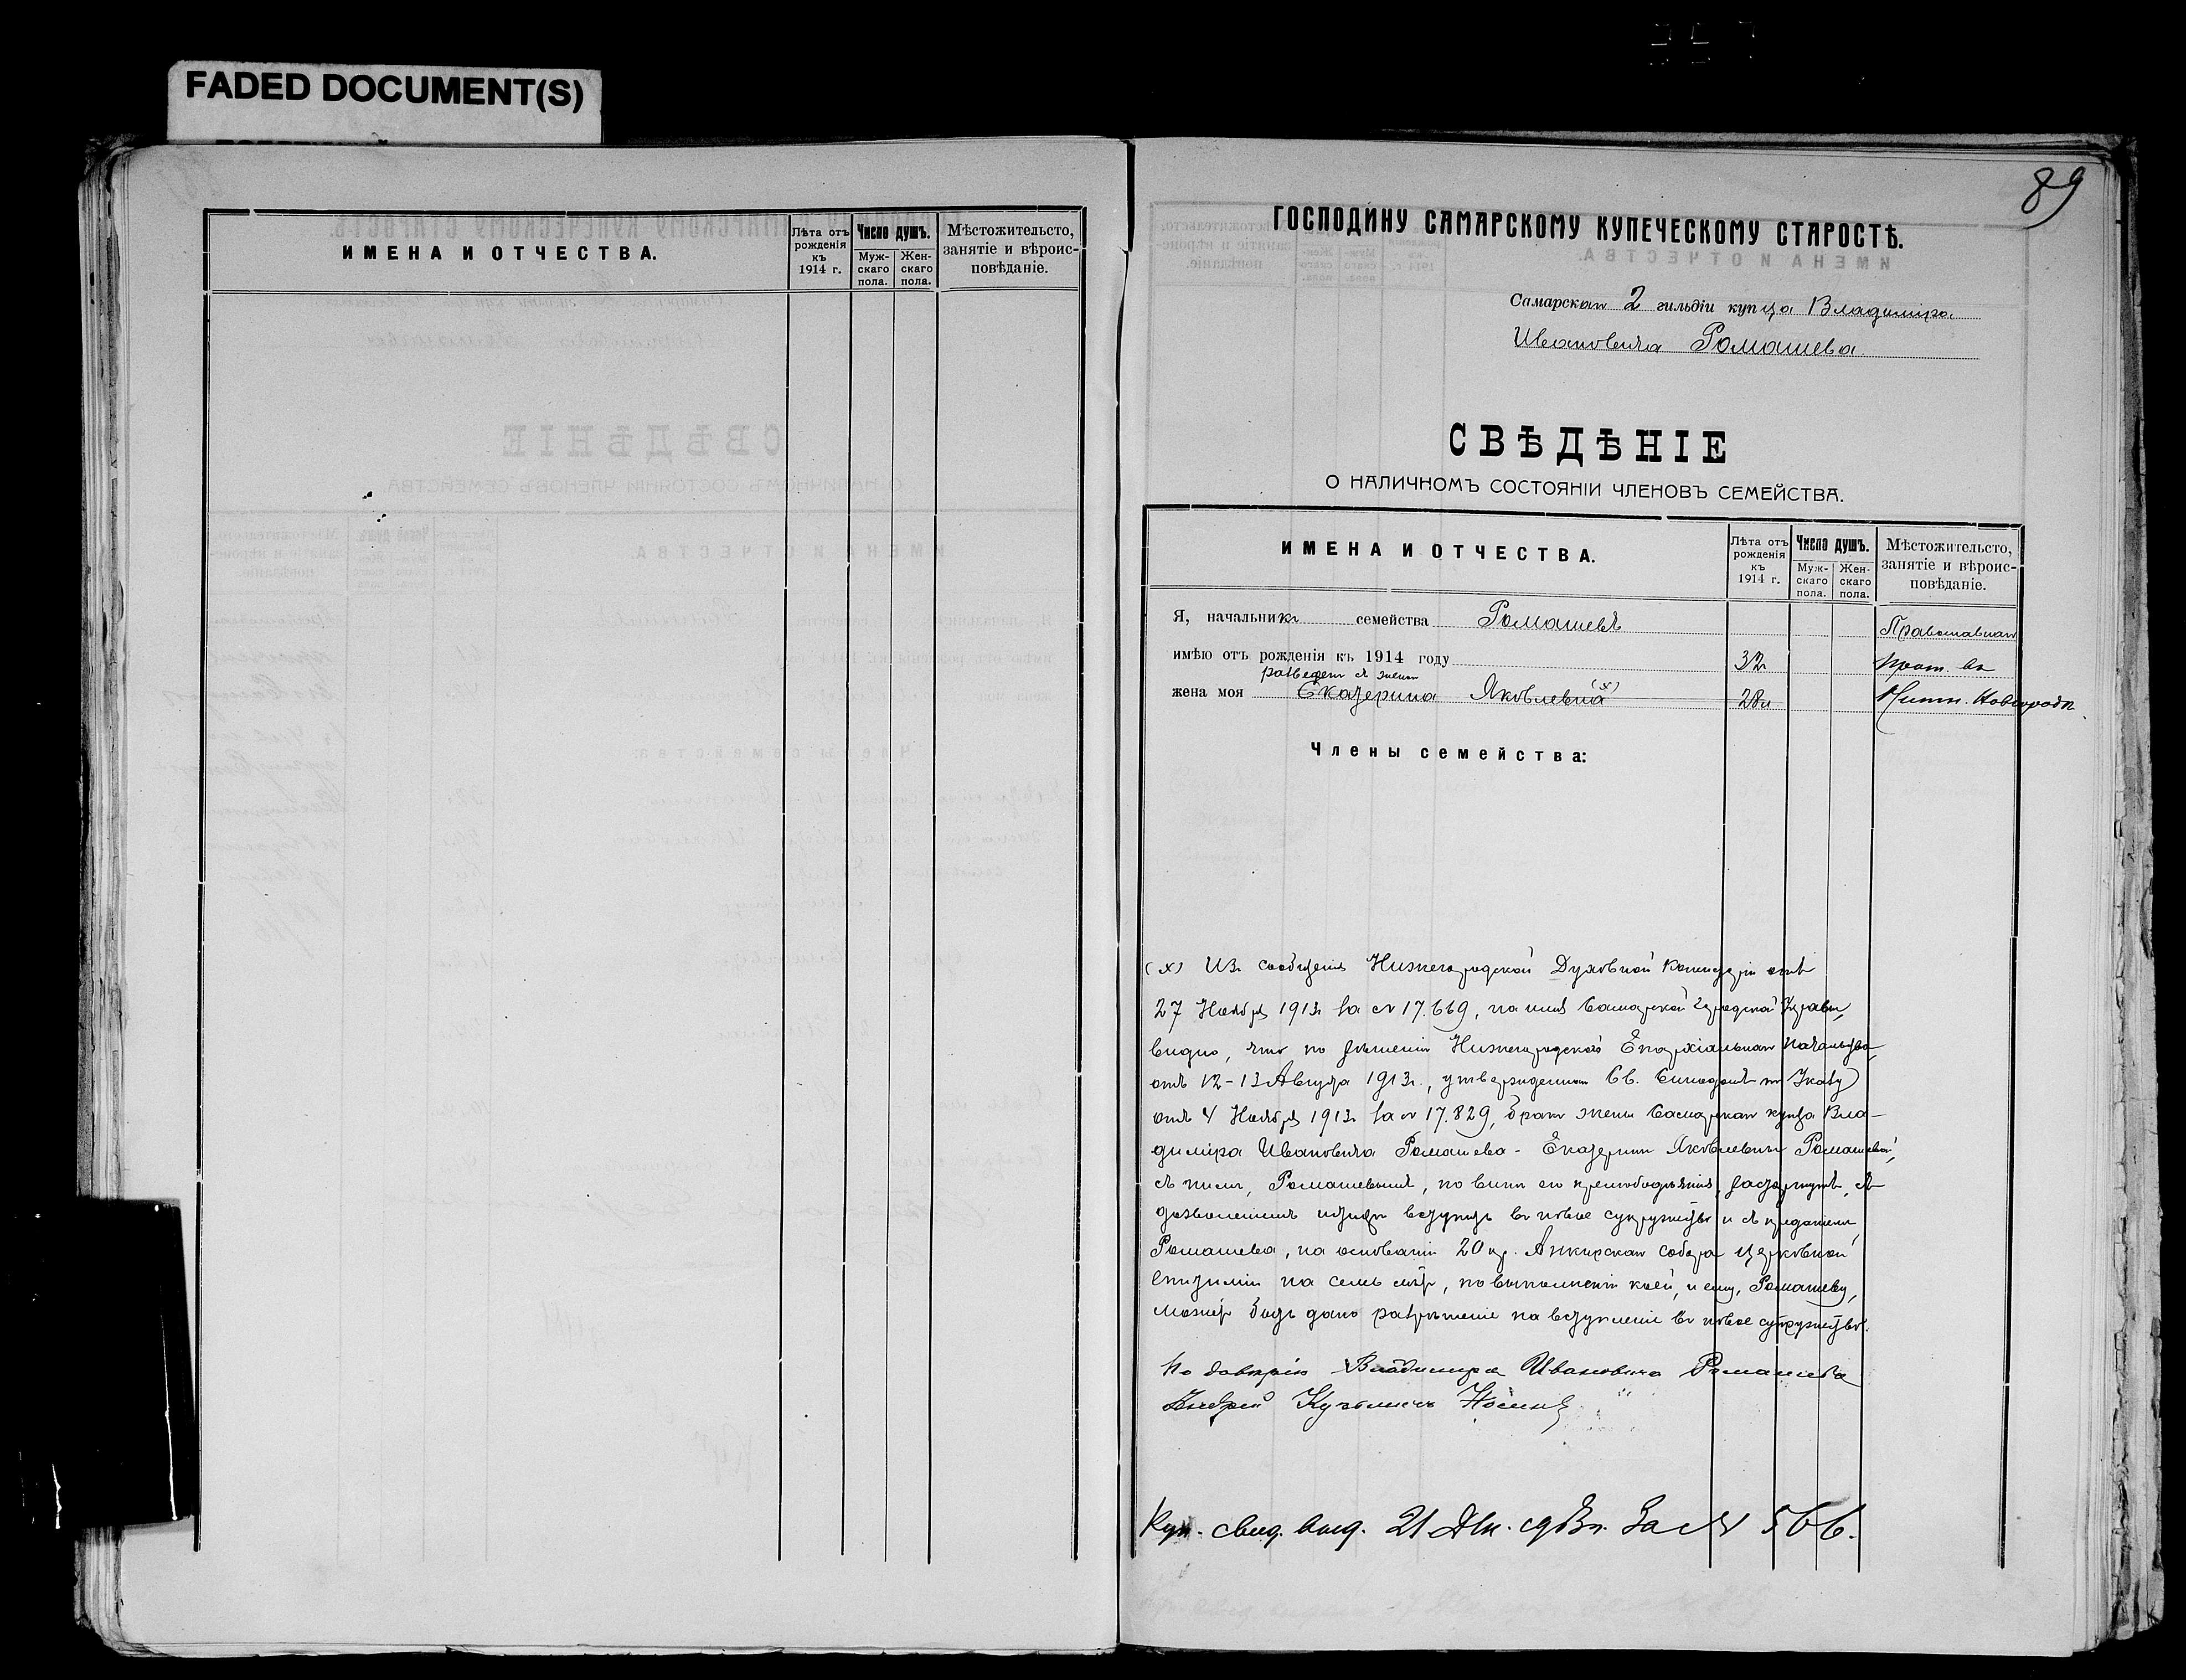 FADED DOCUMENT(S)
ИМЕНА И ОТЧЕСТВА.
Лѣта отъ рожденія къ 1914 г.
Число душъ.
Муж-скаго пола.
Жен-скаго пола.
Мѣстожительсто, занятіе и вѣроис-повѣданіе.
89
ГОСПОДИНУ САМАРСКОМУ КУПЕЧЕСКОМУ СТАРОСТѢ.
Самарскаго 2 гильдіи купца Владиміра
Ивановича Ромашева.
СВѢДѢНІЕ
О НАЛИЧНОМЪ СОСТОЯНІИ ЧЛЕНОВЪ СЕМЕЙСТВА.
ИМЕНА И ОТЧЕСТВА.
Лѣта отъ рожденія къ 1914 г.
Число душъ.
Муж-скаго пола.
Жен-скаго пола.
Мѣстожительсто, занятіе и вѣроис-повѣданіе.
Я, начальникъ семейства Ромашевъ Православнаго
имѣю отъ рожденія къ 1914 году 32 прож. въ
разведенъ съ женой
жена моя Екатерина Яковлевна (х) 28 Нижн. Новгородѣ
Члены семейства:
(х) Изъ сообщенія Нижегородской Духовной Консисторіи отъ
27 Ноября 1913г. за № 17.669, на имя Самарской Городской Управы,
видно, что по рѣшенію Нижегородскаго Епархіальнаго Начальства,
отъ 12-13 Августа 1913г., утвержденному Св. Синодомъ по Указу
отъ 4 Ноября 1913г. за № 17.829, бракъ жены Самарскаго купца Вла-
диміра Ивановича Ромашева - Екатерины Яковлевны Ромашевой,
съ нимъ, Ромашевымъ, по винѣ его прелюбодѣянія, расторгнутъ, съ
дозволеніемъ истицѣ вступить въ новое супружество и съ преданіемъ
Ромашева, на основаніи 20 пр. Анкирскаго собора церковной
епитиміи на семь лѣтъ, по выполненіи коей, и ему, Ромашеву,
можетъ быть дано разрѣшеніе на вступленіе въ новое супружество.
По довѣрію Владимира Ивановича Ромашева
Андрей Кузьмичъ
Куп. свид. выд. 21 Дек. с/г за № 566.